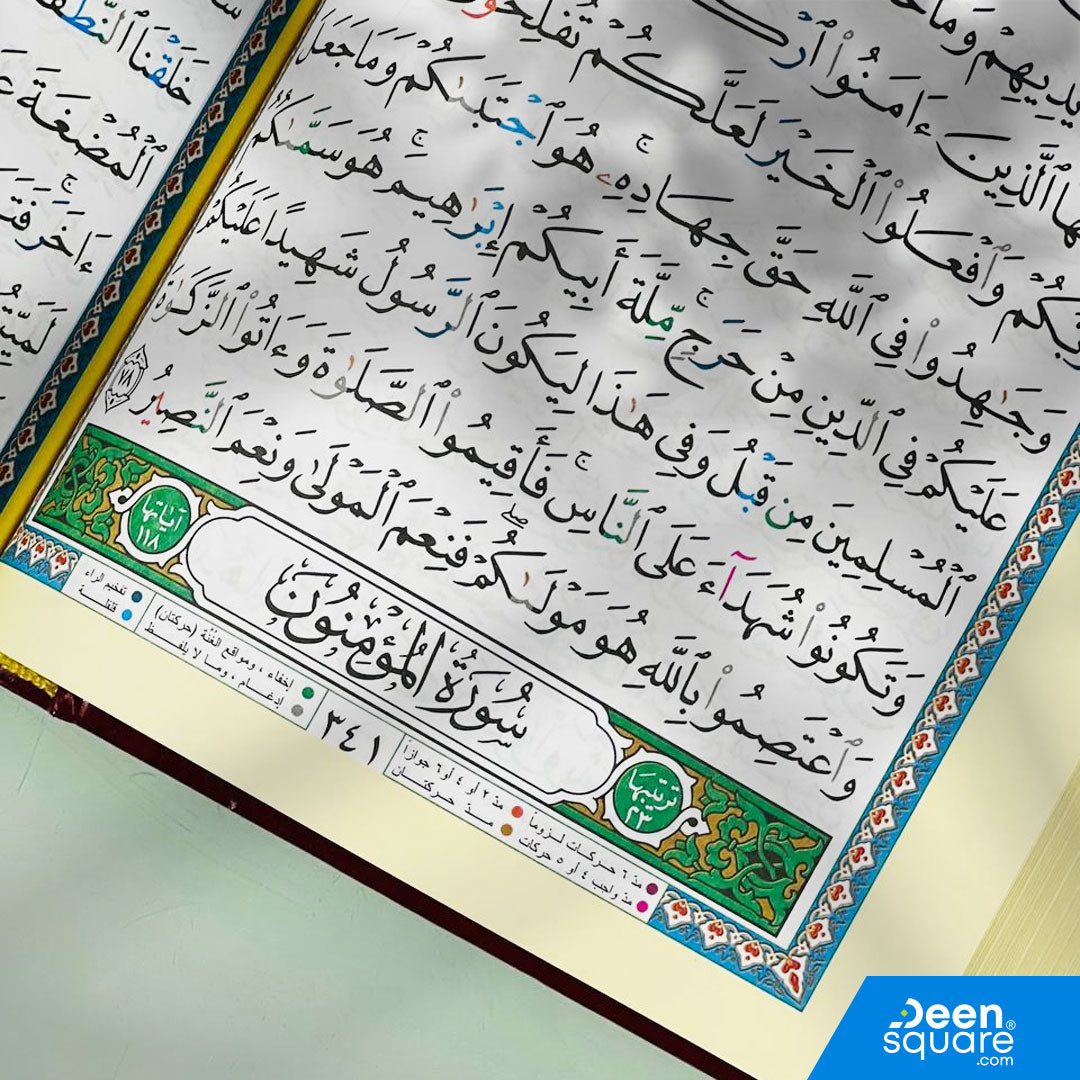 يدِيهِمْ وَمَا خَ
ٱلَّذِينَ ءَامَنُوا۟ ٱرْكَ
رَبَّكُمْ وَٱفْعَلُوا۟ ٱلْخَيْرَ لَعَلَّكُمْ تُفْلِحُو
وَجَٰهِدُوا۟ فِى ٱللَّهِ حَقَّ جِهَادِهِۦ ۚ هُوَ ٱجْتَبَىٰكُمْ وَمَا جَعَلَ
عَلَيْكُمْ فِى ٱلدِّينِ مِنْ حَرَجٍ ۚ مِّلَّةَ أَبِيكُمْ إِبْرَٰهِيمَ ۚ هُوَ سَمَّىٰكُمُ
ٱلْمُسْلِمِينَ مِن قَبْلُ وَفِى هَٰذَا لِيَكُونَ ٱلرَّسُولُ شَهِيدًا عَلَيْكُمْ
وَتَكُونُوا۟ شُهَدَآءَ عَلَى ٱلنَّاسِ ۚ فَأَقِيمُوا۟ ٱلصَّلَوٰةَ وَءَاتُوا۟ ٱلزَّكَوٰةَ
وَٱعْتَصِمُوا۟ بِٱللَّهِ هُوَ مَوْلَىٰكُمْ ۖ فَنِعْمَ ٱلْمَوْلَىٰ وَنِعْمَ ٱلنَّصِيرُ ٧٨
ترتيبها ٢٣
سُورَةُ الْمُؤْمِنُونَ
آياتها ١١٨
مدّ ٦ حركات لزوماً
مدّ ٢ أو ٤ أو ٦ جوازاً
مدّ واجب ٤ أو ٥ حركات
مدّ حركتان
٣٤١
إخفاء ، ومواقع الغُنَّة (حركتان)
تفخيم الراء
إدغام ، وما لا يلفظ
قلقلة
خَلَقْنَا ٱلنُّطْفَ
ٱلْمُضْغَةَ عِ
ءَاخَرَ ۚ فَتَ
لَمَيِّتُ
Deen®
square
.com